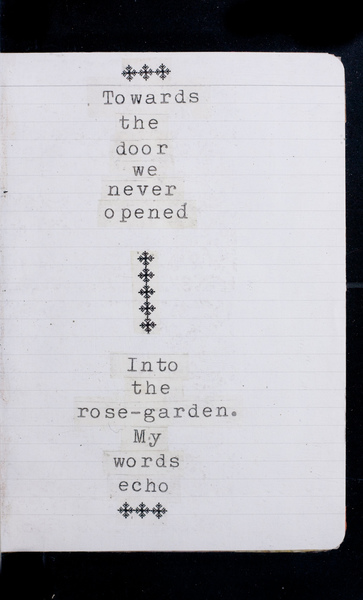 Towards
the
door
we
never
opened
Into
the
rose-garden.
My
words
echo